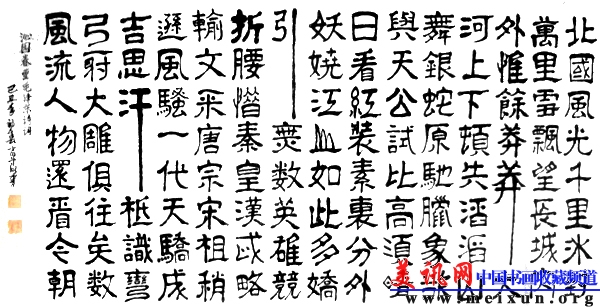 北國風光千里冰
萬里雪飄望長城
外惟餘莽莽
河上下頓失滔滔
舞銀蛇原馳臘象
與天公試比高須
日看紅裝素裹分外
妖嬈江山如此多嬌
引無數英雄競
折腰惜秦皇漢武略
輸文采唐宗宋祖稍
遜風騷一代天驕成
吉思汗祇識彎
弓射大雕俱往矣數
風流人物還看今朝
沁園春雪毛澤東詩詞
美讯网 中国书画收藏频道
www.meixun.org